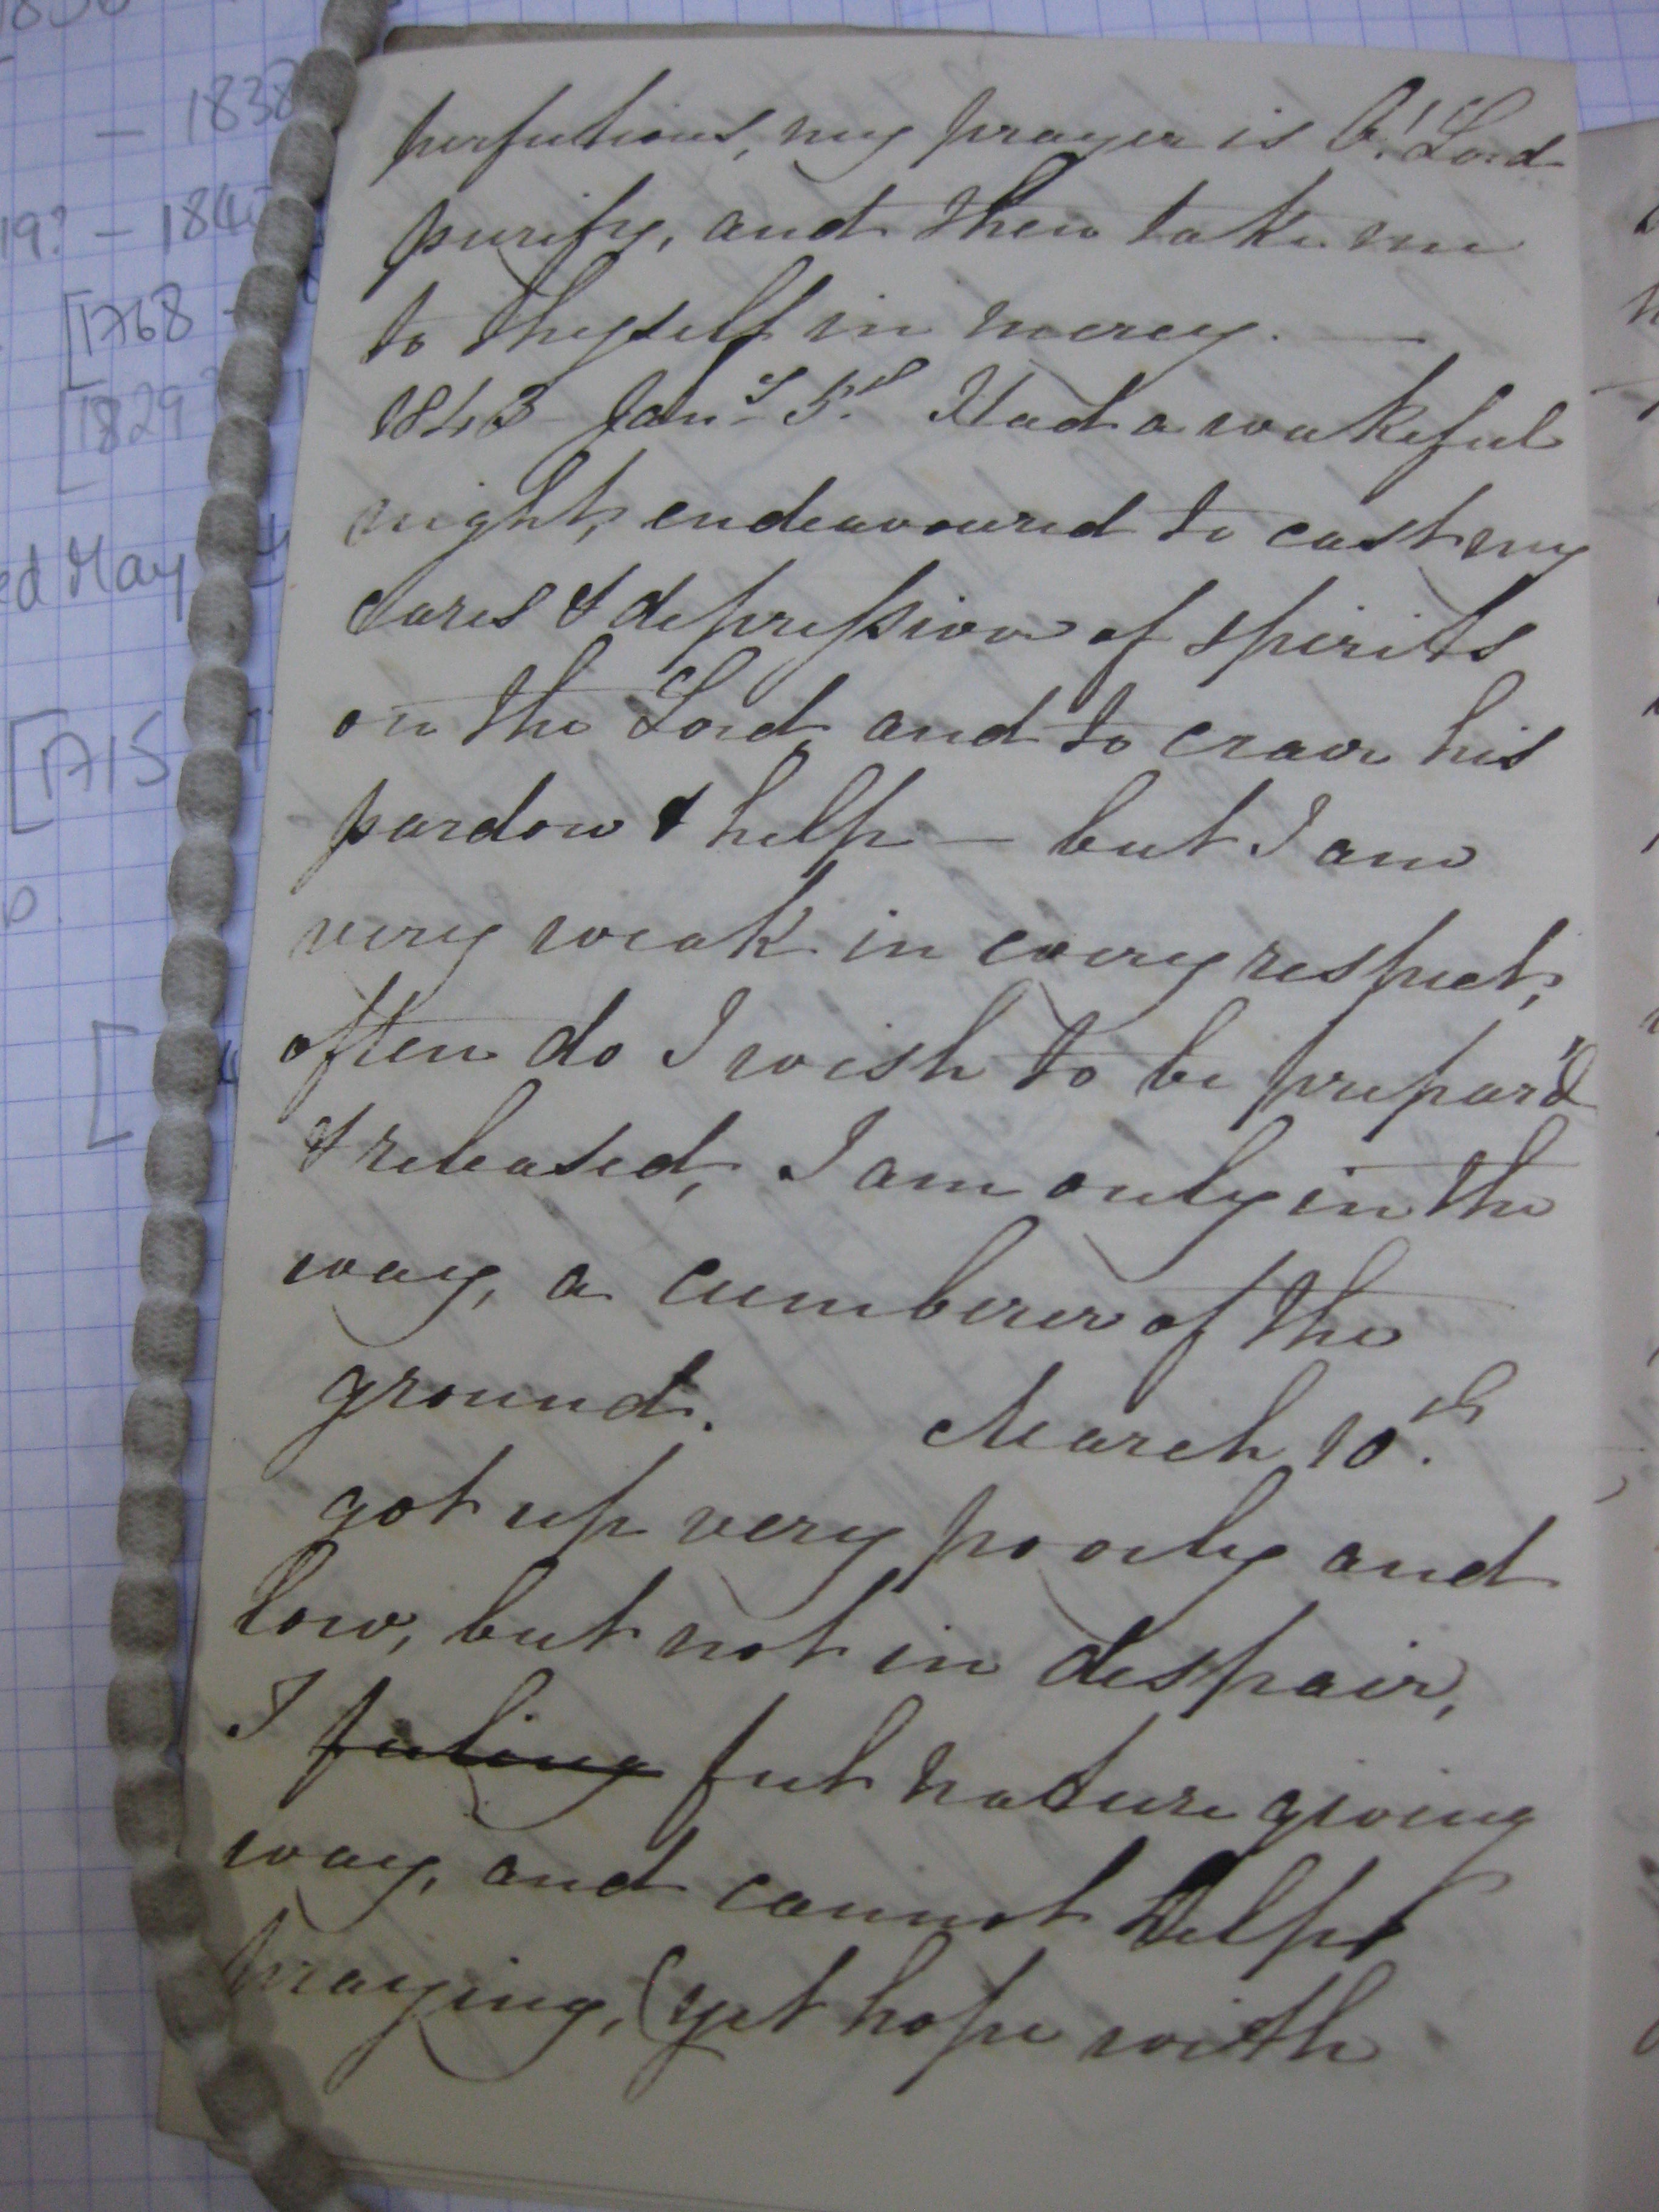 perfections, my prayer is O! Lord
purify, and then take me
to thyself in mercy. —
1843 Jany 5th Had a wakeful
night, endeavoured to cast my
cares & depression of spirits
on the Lord and to crave his
pardon & help — but I am
very weak in every respect,
often do I wish to be prepar'd
& released, I am only in the
way, a cumberer of the
ground. March 10th.
got up very poorly and
low, but not in despair,
I feeling felt nature giving
way, and cannot help
praying, (yet hope with
- 1838
19? - 184
[1768 -
[1829?
ed May
[1715
[